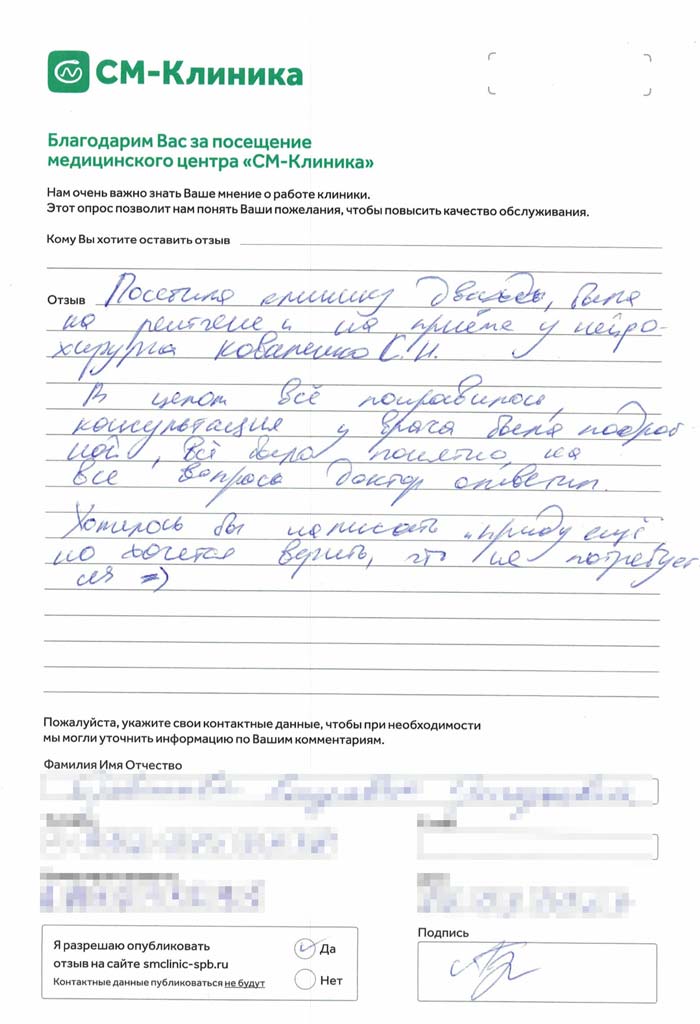 СМ-Клиника
Благодарим Вас за посещение
медицинского центра «СМ-Клиника»
Нам очень важно знать Ваше мнение о работе клиники.
Этот опрос позволит нам понять Ваши пожелания, чтобы повысить качество обслуживания.
Кому Вы хотите оставить отзыв
Отзыв Посетила клинику дважды, была
на рентгене и на приёме у нейро-
хирурга Коваленко С.Н.
В целом всё понравилось,
консультация у врача была подроб
ной, всё было понятно, на
все вопросы доктор ответил.
Хотелось бы написать „приду ещё
но хочется верить, что не потребует
ся =)
Пожалуйста, укажите свои контактные данные, чтобы при необходимости
мы могли уточнить информацию по Вашим комментариям.
Фамилия Имя Отчество
Подпись
Я разрешаю опубликовать
отзыв на сайте smclinic-spb.ru
Контактные данные публиковаться не будут
Да
Нет